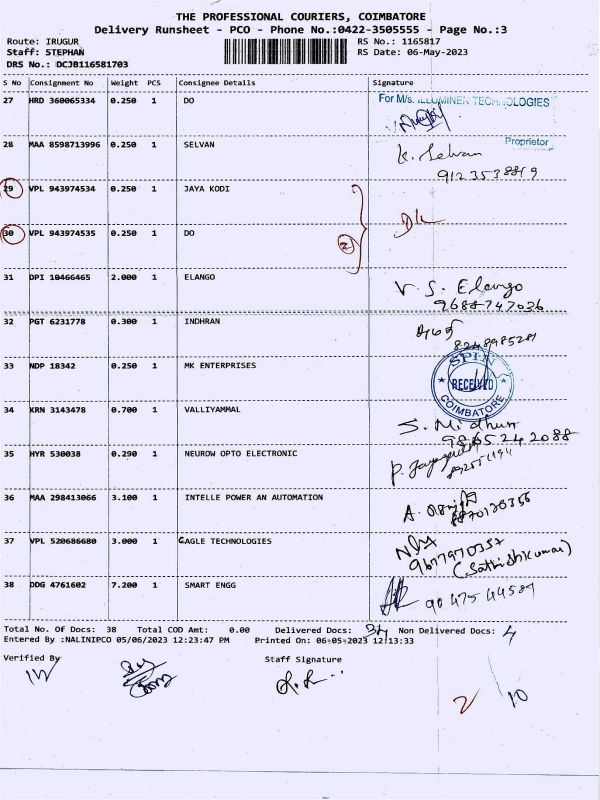 THE PROFESSIONAL COURIERS, COIMBATORE
Delivery Runsheet - PCO - Phone No.:0422-3505555 - Page No.:3
Route: IRUGUR RS No.: 1165817
Staff: STEPHAN RS Date: 06-May-2023
DRS No.: DCJB116581703
S No Consignment No Weight PCS Consignee Details Signature
27 HRD 360065334 0.250 1 DO For M/s. ILLUMINER TECHNOLOGIES
28 MAA 8598713996 0.250 1 SELVAN Proprietor
K. Selvan
9123538819
29 VPL 943974534 0.250 1 JAYA KODI
30 VPL 943974535 0.250 1 DO
2
DL
31 DPI 10466465 2.000 1 ELANGO V. S. Elango
9688747036
32 PGT 6231778 0.300 1 INDHRAN
33 NDP 18342 0.250 1 MK ENTERPRISES SPIN
RECEIVED
COIMBATORE
34 KRN 3143478 0.700 1 VALLIYAMMAL S. Midhun
9865242088
35 HYR 530038 0.290 1 NEUROW OPTO ELECTRONIC
36 MAA 298413066 3.100 1 INTELLE POWER AN AUTOMATION
8870120356
37 VPL 520686680 3.000 1 EAGLE TECHNOLOGIES
9677970357
(Sathishkumar)
38 DDG 4761602 7.200 1 SMART ENGG 9047544589
Total No. Of Docs: 38 Total COD Amt: 0.00 Delivered Docs: 34 Non Delivered Docs: 4
Entered By :NALINIPCO 05/06/2023 12:23:47 PM Printed On: 06-05-2023 12:13:33
Verified By Staff Signature
2 / 10